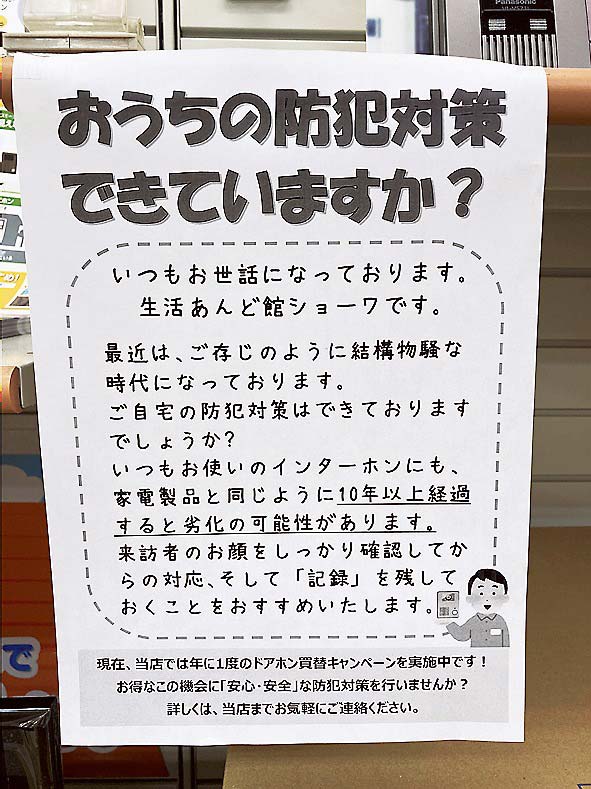 Panasonic
おうちの防犯対策
できていますか？
いつもお世話になっております。
生活あんど館ショーワです。
最近は、ご存じのように結構物騒な
時代になっております。
ご自宅の防犯対策はできております
でしょうか？
いつもお使いのインターホンにも、
家電製品と同じように10年以上経過
すると劣化の可能性があります。
来訪者のお顔をしっかり確認してか
らの対応、そして「記録」を残して
おくことをおすすめいたします。
現在、当店では年に1度のドアホン買替キャンペーンを実施中です！
お得なこの機会に「安心・安全」な防犯対策を行いませんか？
詳しくは、当店までお気軽にご連絡ください。
で